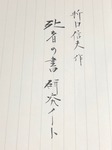 折口信夫 作
死者の書 研究ノート